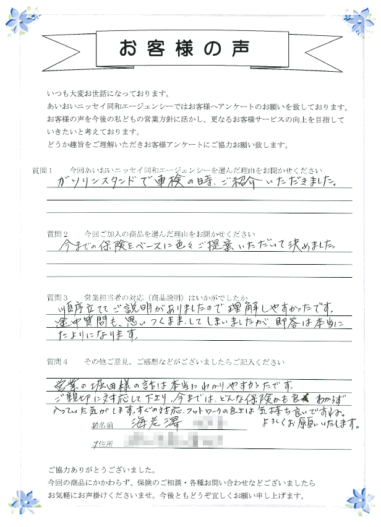 お客様の声
いつも大変お世話になっております。
あいおいニッセイ同和エージェンシーではお客様へアンケートのお願いを致しております。
お客様の声を今後の私どもの営業方針に活かし、更なるお客様サービスの向上を目指して
いきたいと考えております。
どうか趣旨をご理解いただきお客様アンケートにご協力お願い致します。
質問1 今回あいおいニッセイ同和エージェンシーを選んだ理由をお聞かせください
ガソリンスタンドで車検の時、ご紹介いただきました。
質問2 今回ご加入の商品を選んだ理由をお聞かせください
今までの保険をベースに色々ご提案いただいて決めました。
質問3 営業担当者の対応（商品説明）はいかがでしたか
順序立ててご説明がありましたので理解しやすかったです。
途中質問も、思いつくまましてしまいましたが即答は本当に
たよりになります。
質問4 その他ご意見、ご感想などがございましたらご記入ください
営業の堀田様の話は本当にわかりやすかったです。
ご親切に対応して下さり、今までは、どんな保険かも わからず
入っていた気がします。すぐの対応、フォローの良さは気持ち良いですね。
よろしくお願いいたします。
御名前 海老澤
ご住所
ご協力ありがとうございました。
今回の商品にかかわらず、保険のご相談・各種お問い合わせなどございましたら
お気軽にお声掛けくださいませ。今後ともどうぞ宜しくお願い申し上げます。